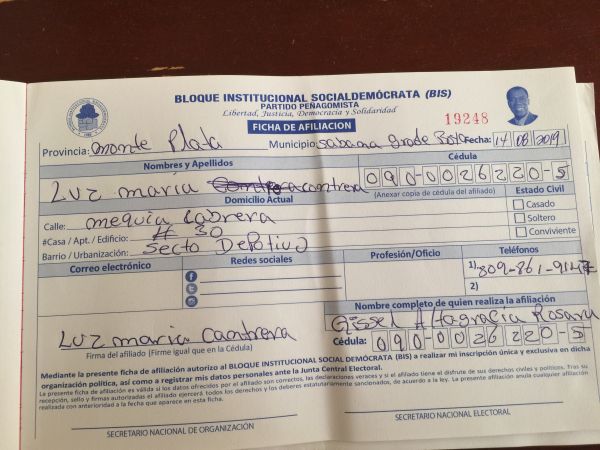 BLOQUE INSTITUCIONAL SOCIALDEMÓCRATA (BIS)
PARTIDO PEÑAGOMISTA
Libertad, Justicia, Democracia y Solidaridad
FICHA DE AFILIACION
19248
Provincia: monte Plata Municipio: sabana grade Fecha: 14/08/2019
Nombres y Apellidos
Luz maria cantrera
Cédula
090-0026220-5
(Anexar copia de cédula del afiliado)
Domicilio Actual
Calle: mequia cabrera
#Casa / Apt. / Edificio: # 30
Barrio / Urbanización: Secto Depotivo
Estado Civil
Casado
Soltero
Conviviente
Correo electrónico
Redes sociales
Profesión/Oficio
Teléfonos
1) 809-861-914
2)
Nombre completo de quien realiza la afiliación
Gissel Altagracia Rosaru
Cédula: 090-0026220-5
Luz maria Cantrera
Firma del afiliado (Firme igual que en la Cédula)
Mediante la presente ficha de afiliación autorizo al BLOQUE INSTITUCIONAL SOCIAL DEMÓCRATA (BIS) a realizar mi inscripción única y exclusiva en dicha
organización política, así como a registrar mis datos personales ante la Junta Central Electoral.
La presente ficha de afiliación es válida si los datos ofrecidos por el afiliado son correctos, las declaraciones veraces y si el afiliado tiene el disfrute de sus derechos civiles y políticos. Tras su
recepción, sello y firmas autorizadas el afiliado ejercerá todos los derechos y los deberes estatutariamente sancionados, de acuerdo a la ley. La presente afiliación anula cualquier afiliación
realizada con anterioridad a la fecha que aparece en esta ficha.
SECRETARIO NACIONAL DE ORGANIZACIÓN
SECRETARIO NACIONAL ELECTORAL